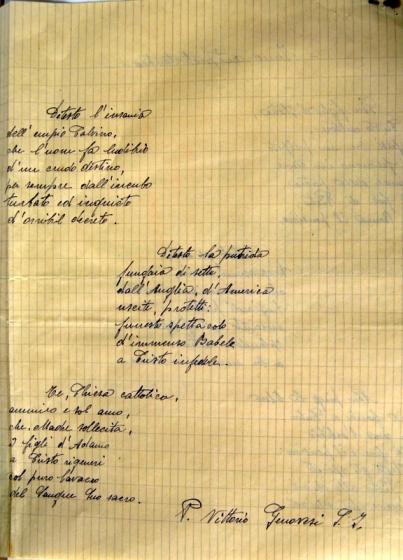 Detesto l'insania
dell'empio Calvino,
che l'uom fa ludibrio
d'un crudo destino,
per sempre dall'incubo
turbato ed inquieto
d'orribil decreto.
Detesto la putrida
fungaia di sette
dall'Anglia, d'America
uscite, protette:
funesto spettacolo
d'immensa Babele
a Cristo infedele..
Te, Chiesa cattolica,
ammiro e sol amo,
che, Madre sollecita,
i figli d'Adamo
a Cristo rigeneri
col puro lavacro
del Sangue Suo sacro.
P. Vittorio Genovesi S. J.